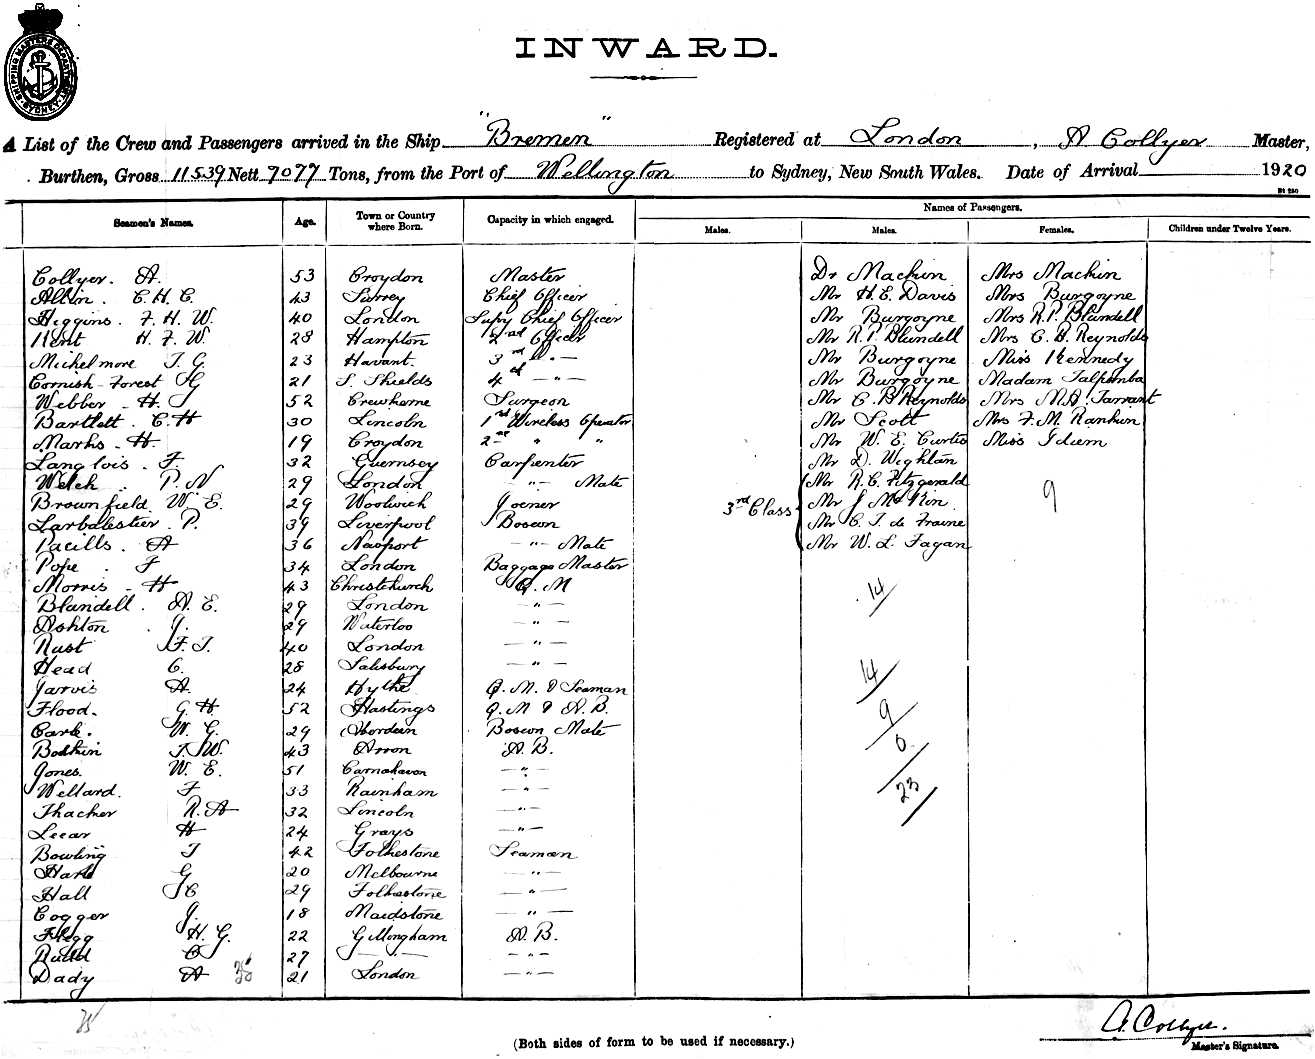 SHIPPING MASTERS DEPARTMENT SYDNEY
INWARD.
A List of the Crew and Passengers arrived in the Ship "Bremen" Registered at London, A Collyer Master,
Burthen, Gross 11539 Nett 7077 Tons, from the Port of Wellington to Sydney, New South Wales. Date of Arrival 1920
Seamen's Names. Age. Town or Country where Born. Capacity in which engaged. Names of Passengers.
Males. Males. Females. Children under Twelve Years.
Collyer. A. 53 Croydon Master Dr Machin Mrs Machin
Albin. C. H. C. 43 Surrey Chief Officer Mr H. E. Davis Mrs Burgoyne
Higgins. F. H. W. 40 London Supy Chief Officer Mr Burgoyne Mrs R. P. Blundell
Kent H. F. W. 28 Hampton 2nd Officer Mr R. P. Blundell Mrs C. B. Reynolds
Michelmore T. G. 23 Havant. 3rd " — Mr Burgoyne Miss Kennedy
Cornish-Forest G 21 S. Shields 4th — " — Mr Burgoyne Madam Talpomba
Webber. H. 52 Crewkerne Surgeon Mr C. B. Reynolds Mrs M. A. Tarrant
Bartlett. C. H 30 Lincoln 1st Wireless Operator Mr Scott Mrs F. M. Rankin
Marks. H. 19 Croydon 2nd " " Mr W. E. Curtis Miss Idiem
Langlois. F. 32 Guernsey Carpenter Mr D. Wighlan
Welch. P. N 29 London — " — Mate Mr R. C. Fitzgerald
Brownfield W. E. 29 Woolwich Joener 3rd Class Mr J 9
Larbalestier. P. 39 Liverpool Boscon Mr C. T. de Fraine
Pacills. A 36 Newport — " — Mate Mr W. L. Fagan
Pope. F 34 London Baggage Master
Morris. H 43 Christchurch Q. M 14
Blandell. A. E. 29 London — " —
Ashton. J. 29 Waterloo — " —
Rust F. T. 40 London — " —
Head C. 28 Salisbury — " — 14
Jarvis A. 24 Hythe Q. M. & Seaman
Flood. G H 52 Hastings Q. M & A. B. 9
Cark. W. G. 29 Aberdeen Boscon Mate 0
Bodkin T. W. 43 Arron A. B.
Jones. W. E. 51 Carnahavon — " — 23
Wellard. F 33 Rainham — " —
Thacker R. A 32 Lincoln — " —
Leear H 24 Grays — " —
Bowling T 42 Folkestone Seaman
Hark G 20 Melbourne — " —
Hall C 29 Folkestone — " —
Cogger J. 18 Maidstone — " —
Flegg H. G. 22 Gillingham A. B.
Rudd C 27 — " — — " —
Dady A 21 London — " —
35
A. Collyer.
Master's Signature.
(Both sides of form to be used if necessary.)